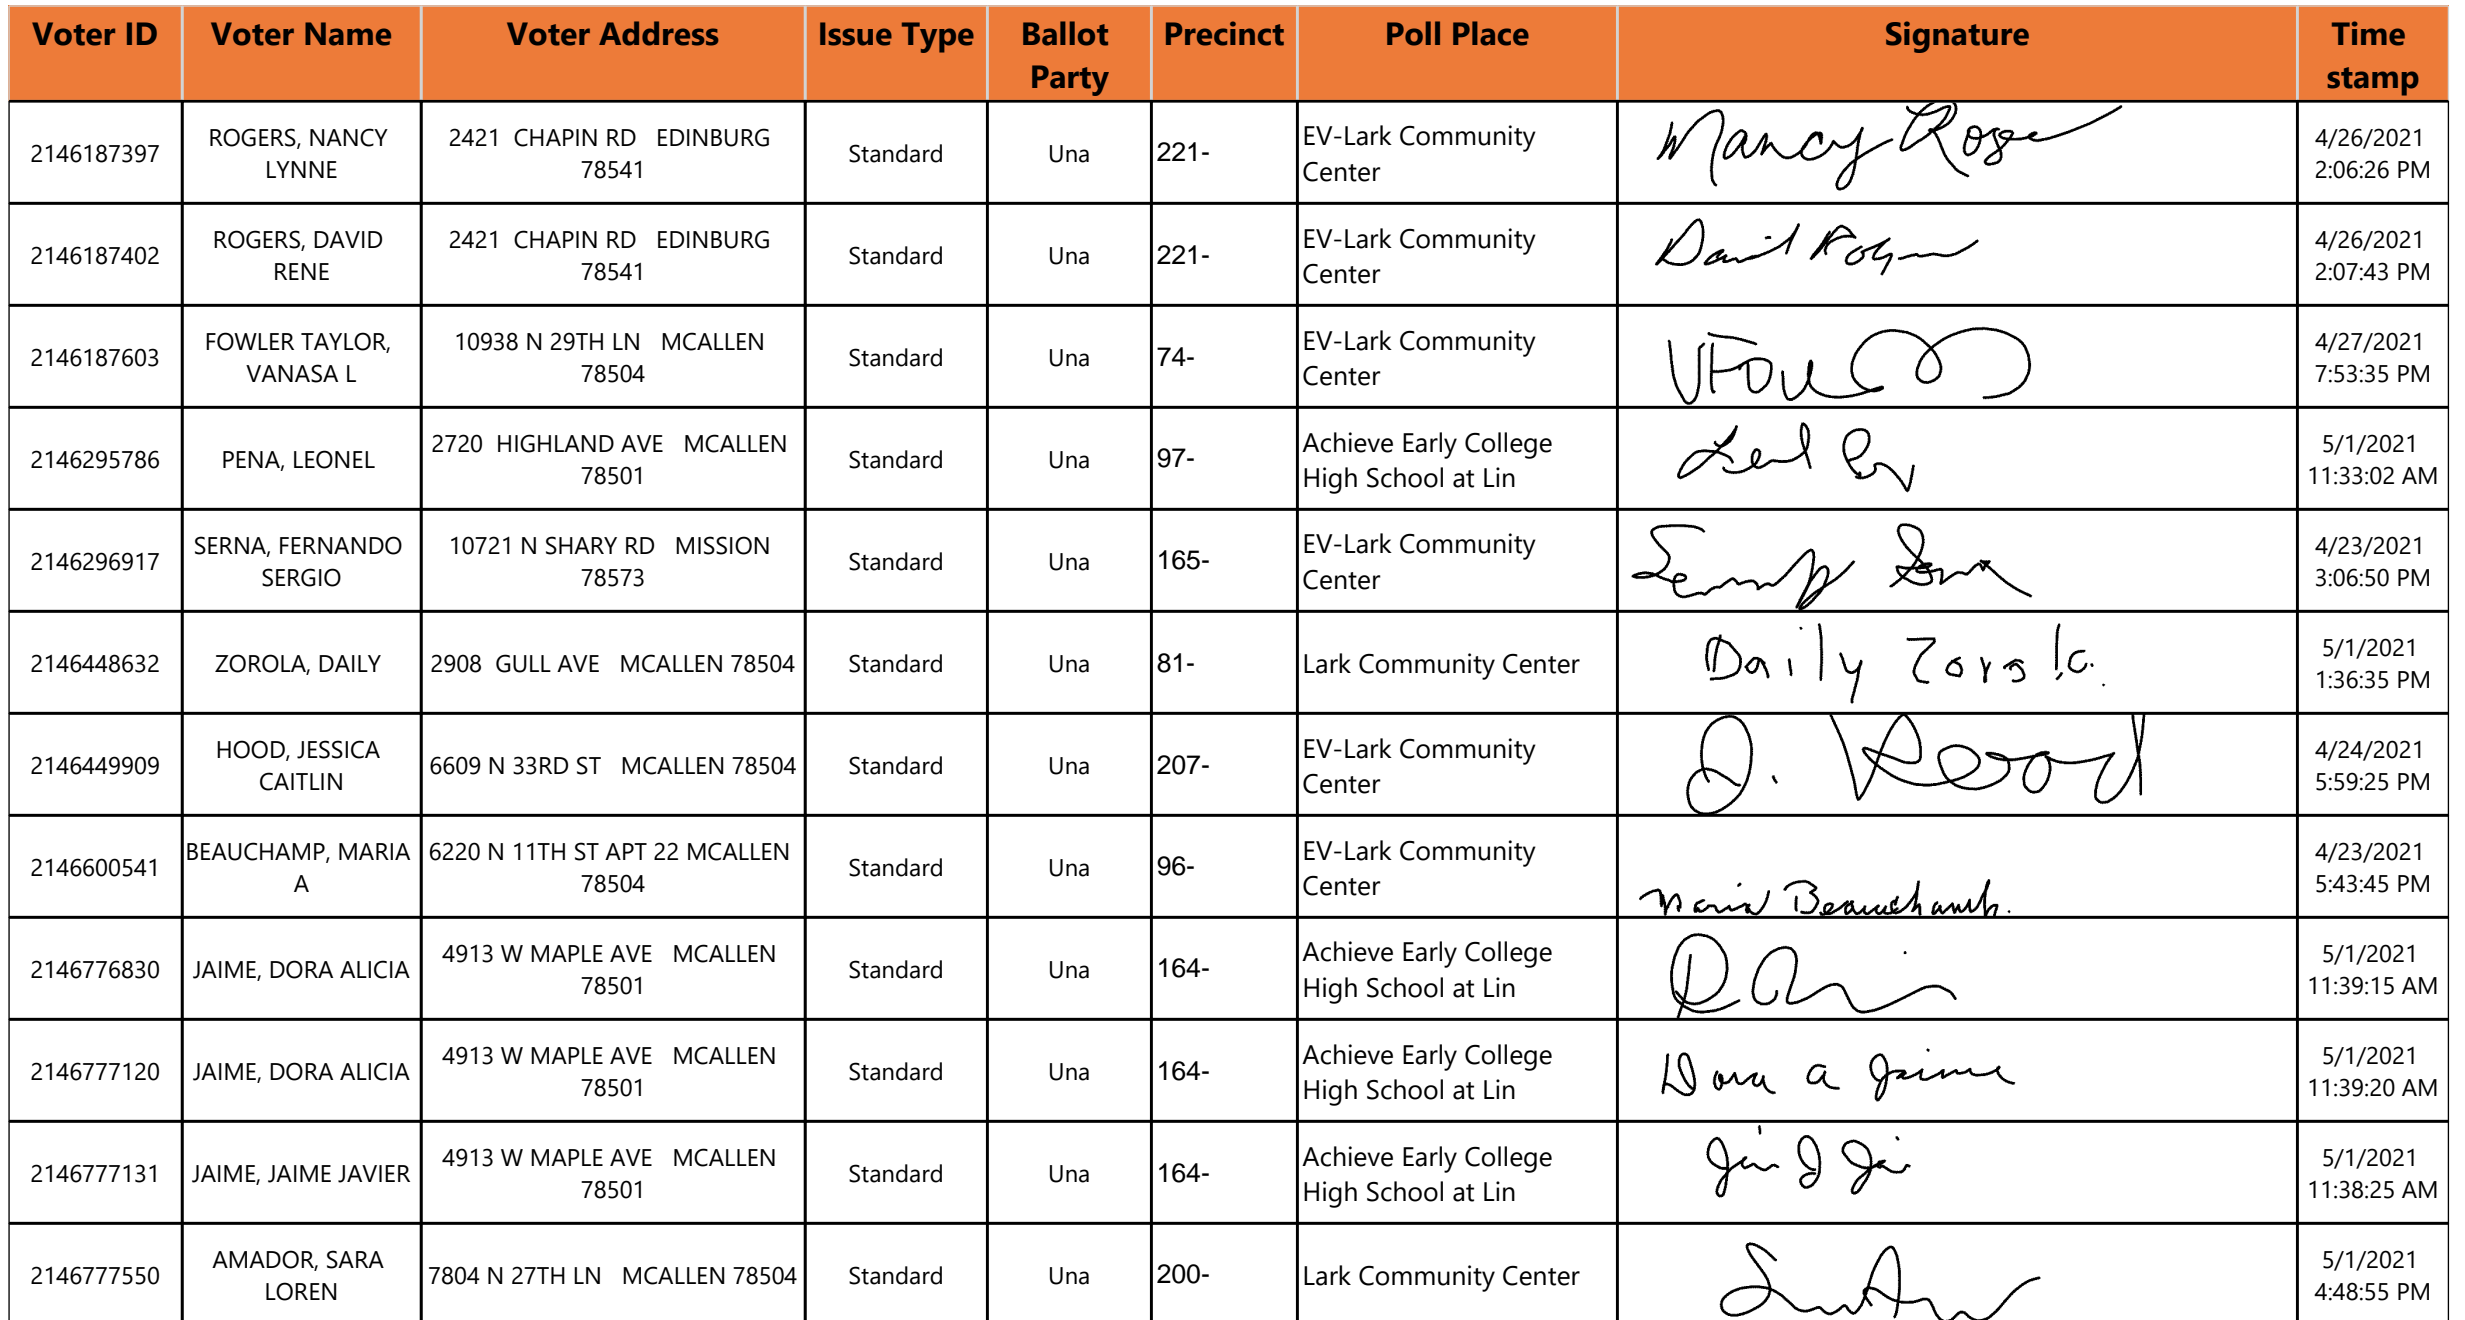 Voter ID Voter Name Voter Address Issue Type Ballot Party Precinct Poll Place Signature Time stamp
2146187397 ROGERS, NANCY LYNNE 2421 CHAPIN RD EDINBURG 78541 Standard Una 221- EV-Lark Community Center Nancy Roge 4/26/2021 2:06:26 PM
2146187402 ROGERS, DAVID RENE 2421 CHAPIN RD EDINBURG 78541 Standard Una 221- EV-Lark Community Center David 4/26/2021 2:07:43 PM
2146187603 FOWLER TAYLOR, VANASA L 10938 N 29TH LN MCALLEN 78504 Standard Una 74- EV-Lark Community Center 4/27/2021 7:53:35 PM
2146295786 PENA, LEONEL 2720 HIGHLAND AVE MCALLEN 78501 Standard Una 97- Achieve Early College High School at Lin 5/1/2021 11:33:02 AM
2146296917 SERNA, FERNANDO SERGIO 10721 N SHARY RD MISSION 78573 Standard Una 165- EV-Lark Community Center 4/23/2021 3:06:50 PM
2146448632 ZOROLA, DAILY 2908 GULL AVE MCALLEN 78504 Standard Una 81- Lark Community Center Daily Zorola. 5/1/2021 1:36:35 PM
2146449909 HOOD, JESSICA CAITLIN 6609 N 33RD ST MCALLEN 78504 Standard Una 207- EV-Lark Community Center J. Hood 4/24/2021 5:59:25 PM
2146600541 BEAUCHAMP, MARIA A 6220 N 11TH ST APT 22 MCALLEN 78504 Standard Una 96- EV-Lark Community Center Maria Beauchamp. 4/23/2021 5:43:45 PM
2146776830 JAIME, DORA ALICIA 4913 W MAPLE AVE MCALLEN 78501 Standard Una 164- Achieve Early College High School at Lin 5/1/2021 11:39:15 AM
2146777120 JAIME, DORA ALICIA 4913 W MAPLE AVE MCALLEN 78501 Standard Una 164- Achieve Early College High School at Lin Dora a Jaime 5/1/2021 11:39:20 AM
2146777131 JAIME, JAIME JAVIER 4913 W MAPLE AVE MCALLEN 78501 Standard Una 164- Achieve Early College High School at Lin 5/1/2021 11:38:25 AM
2146777550 AMADOR, SARA LOREN 7804 N 27TH LN MCALLEN 78504 Standard Una 200- Lark Community Center 5/1/2021 4:48:55 PM